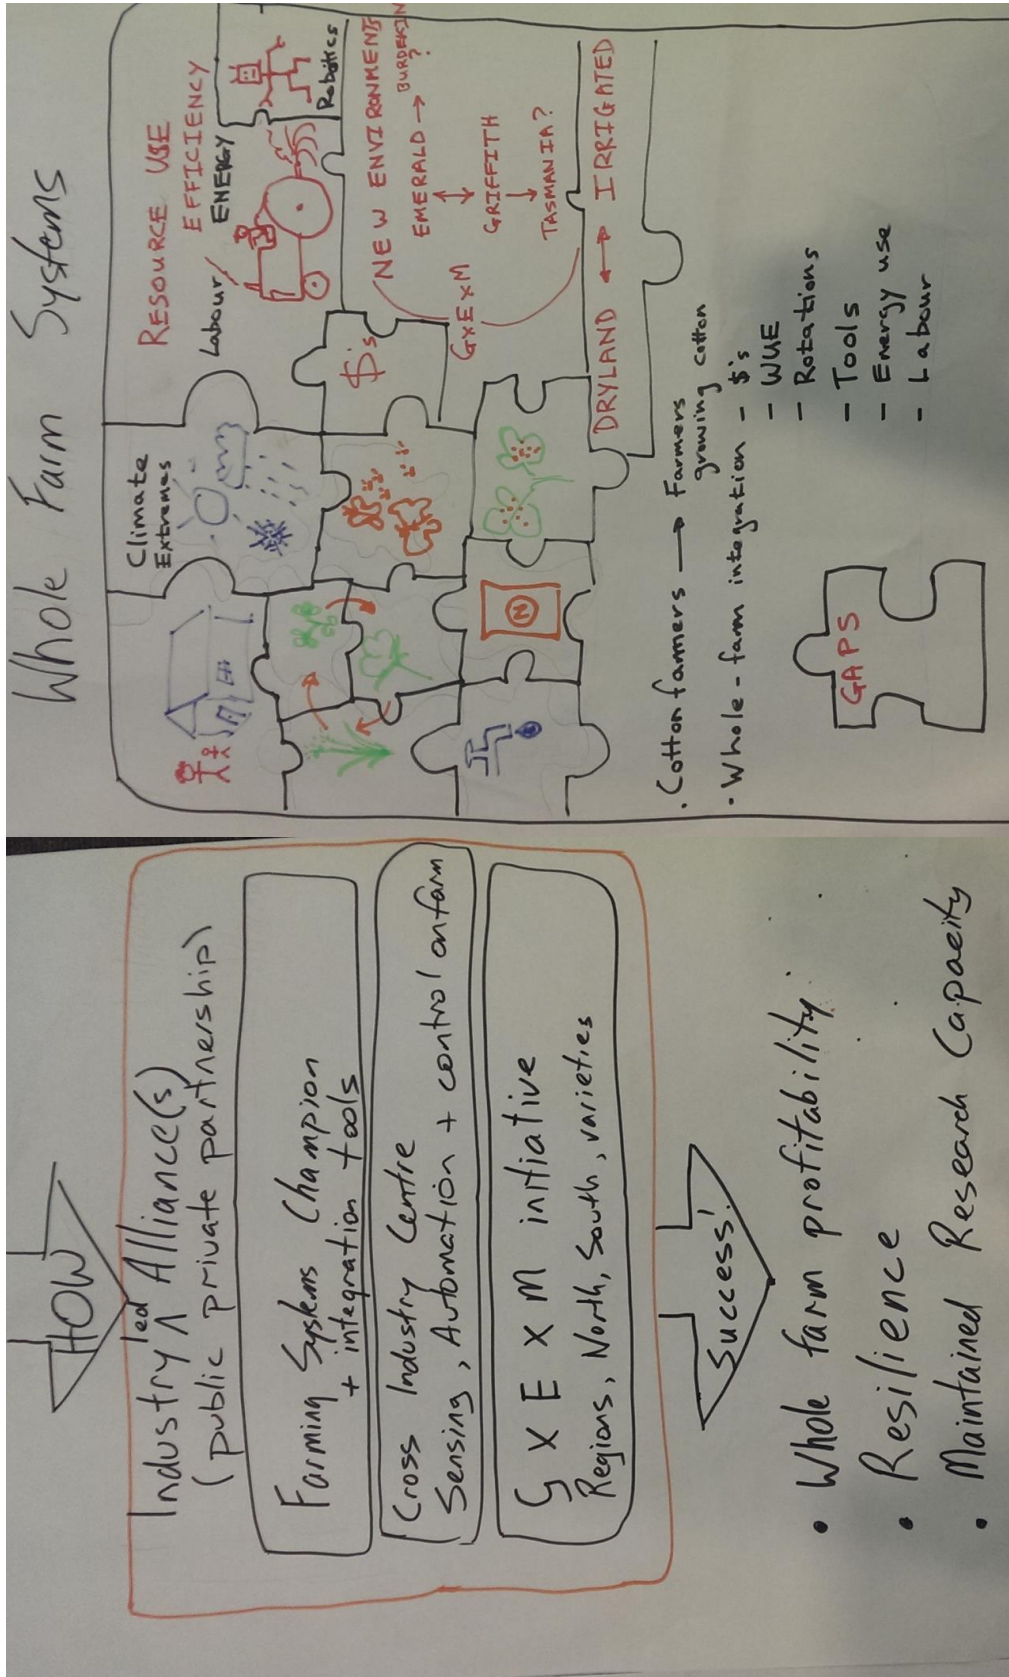 Whole Farm Systems
Climate
Extremes
RESOURCE USE
EFFICIENCY
Labour / ENERGY
Robotics
$'s
NEW ENVIRONMENTS
EMERALD → BURDEKIN
?
GRIFFITH
TASMANIA?
GxExM
N
DRYLAND ↔ IRRIGATED
· Cotton farmers → Farmers
growing cotton
· Whole-farm integration - $'s
- WUE
- Rotations
- Tools
- Energy use
- Labour
GAPS
HOW
Industry led Alliance(s)
(public private partnership)
Farming Systems Champion
+ integration tools
Cross Industry Centre
Sensing, Automation + control onfarm
G x E x M initiative
Regions, North, South, varieties
Success!
• Whole farm profitability
• Resilience
• Maintained Research Capacity